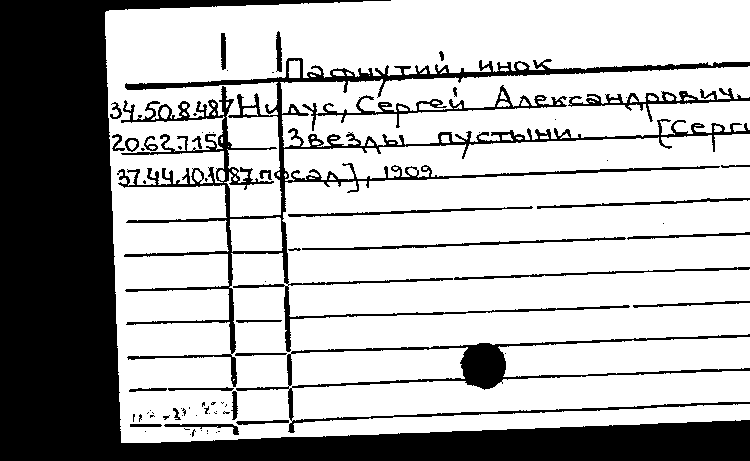 Пафнутий, инок
34.50.8.487 Нилус, Сергей Александрович.
20.62.7.156 Звезды пустыни. [Серги
37.44.10.1087 посад], 1909.